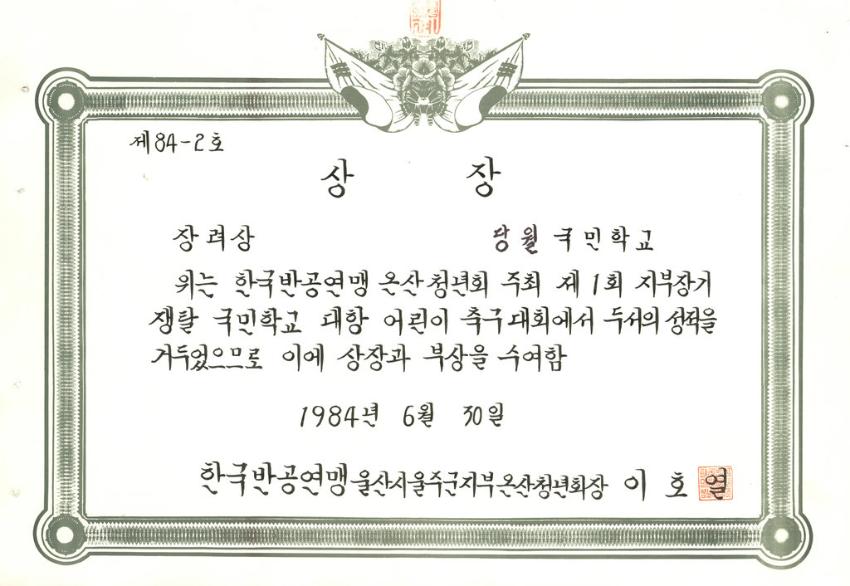 제84-2호
상 장
장려상 당월 국민학교
위는 한국반공연맹 온산청년회 주최 제1회 지부장기
쟁탈 국민학교 대항 어린이 축구대회에서 두서의 성적을
거두었으므로 이에 상장과 부상을 수여함
1984년 6월 30일
한국반공연맹울산시울주군지부온산청년회장 이호열